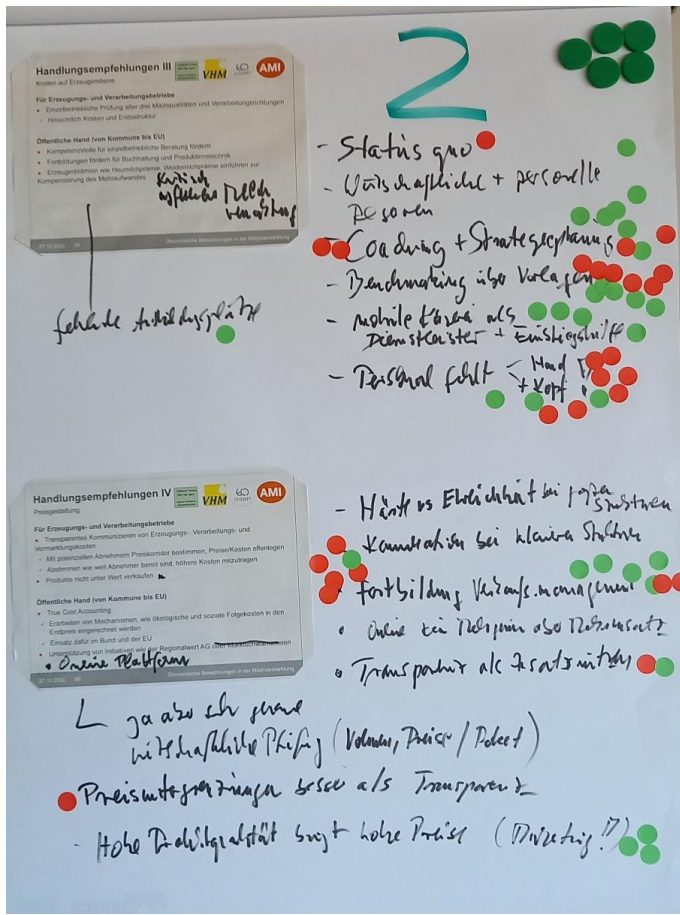 2
Handlungsempfehlungen III
Kosten auf Erzeugerebene
VHM
ECOZEPT
AMI
Für Erzeugungs- und Verarbeitungsbetriebe
• Einzelbetriebliche Prüfung aller drei Milchqualitäten und Verarbeitungsrichtungen
✓ Hinsichtlich Kosten und Erlösstruktur
Öffentliche Hand (von Kommune bis EU)
• Kompetenzstelle für einzelbetriebliche Beratung fördern
• Fortbildungen fördern für Buchhaltung und Produktionstechnik
• Erzeugerprämien wie Heumilchprämie, Weidemilchprämie einführen zur
Kompensierung des Mehraufwandes
kritisch
27.10.2022
Ökonomische Berechnungen in der Milchvermarktung
fehlende Ausbildungsplätze
- Status quo
- Wirtschaftliche + personelle
- Coaching + Strategieplanung
- Benchmarking über Vorlagen
- mobile Käserei als
Dienstleister + Einstiegshilfe
- Personal fehlt < Hand
+ Kopf !
Handlungsempfehlungen IV
Preisgestaltung
VHM
ECOZEPT
AMI
Für Erzeugungs- und Verarbeitungsbetriebe
• Transparentes Kommunizieren von Erzeugungs-, Verarbeitungs- und
Vermarktungskosten
✓ Mit potenziellen Abnehmern Preiskorridor bestimmen, Preise/Kosten offenlegen
✓ Abstimmen wie weit Abnehmer bereit sind, höhere Kosten mitzutragen
• Produkte nicht unter Wert verkaufen
Öffentliche Hand (von Kommune bis EU)
• True Cost Accounting
✓ Erarbeiten von Mechanismen, wie ökologische und soziale Folgekosten in den
Endpreis eingerechnet werden
✓ Einsatz dafür im Bund und der EU
• Unterstützung von Initiativen wie der Regionalwert AG oder Marktschwärmereien
• Online Plattform
27.10.2022
Ökonomische Berechnungen in der Milchvermarktung
- Härte vs Ehrlichkeit bei großen Strukturen
- Kooperation bei kleinen Strukturen
• Fortbildung Verkaufsmanagement
• Online
• Transparenz als Zusatznutzen
ja aber sehr genaue
wirtschaftliche Prüfung (Volumen, Preise / Paket)
besser als Transparenz
- Hohe Produktqualität bringt hohe Preise (Marketing!!)